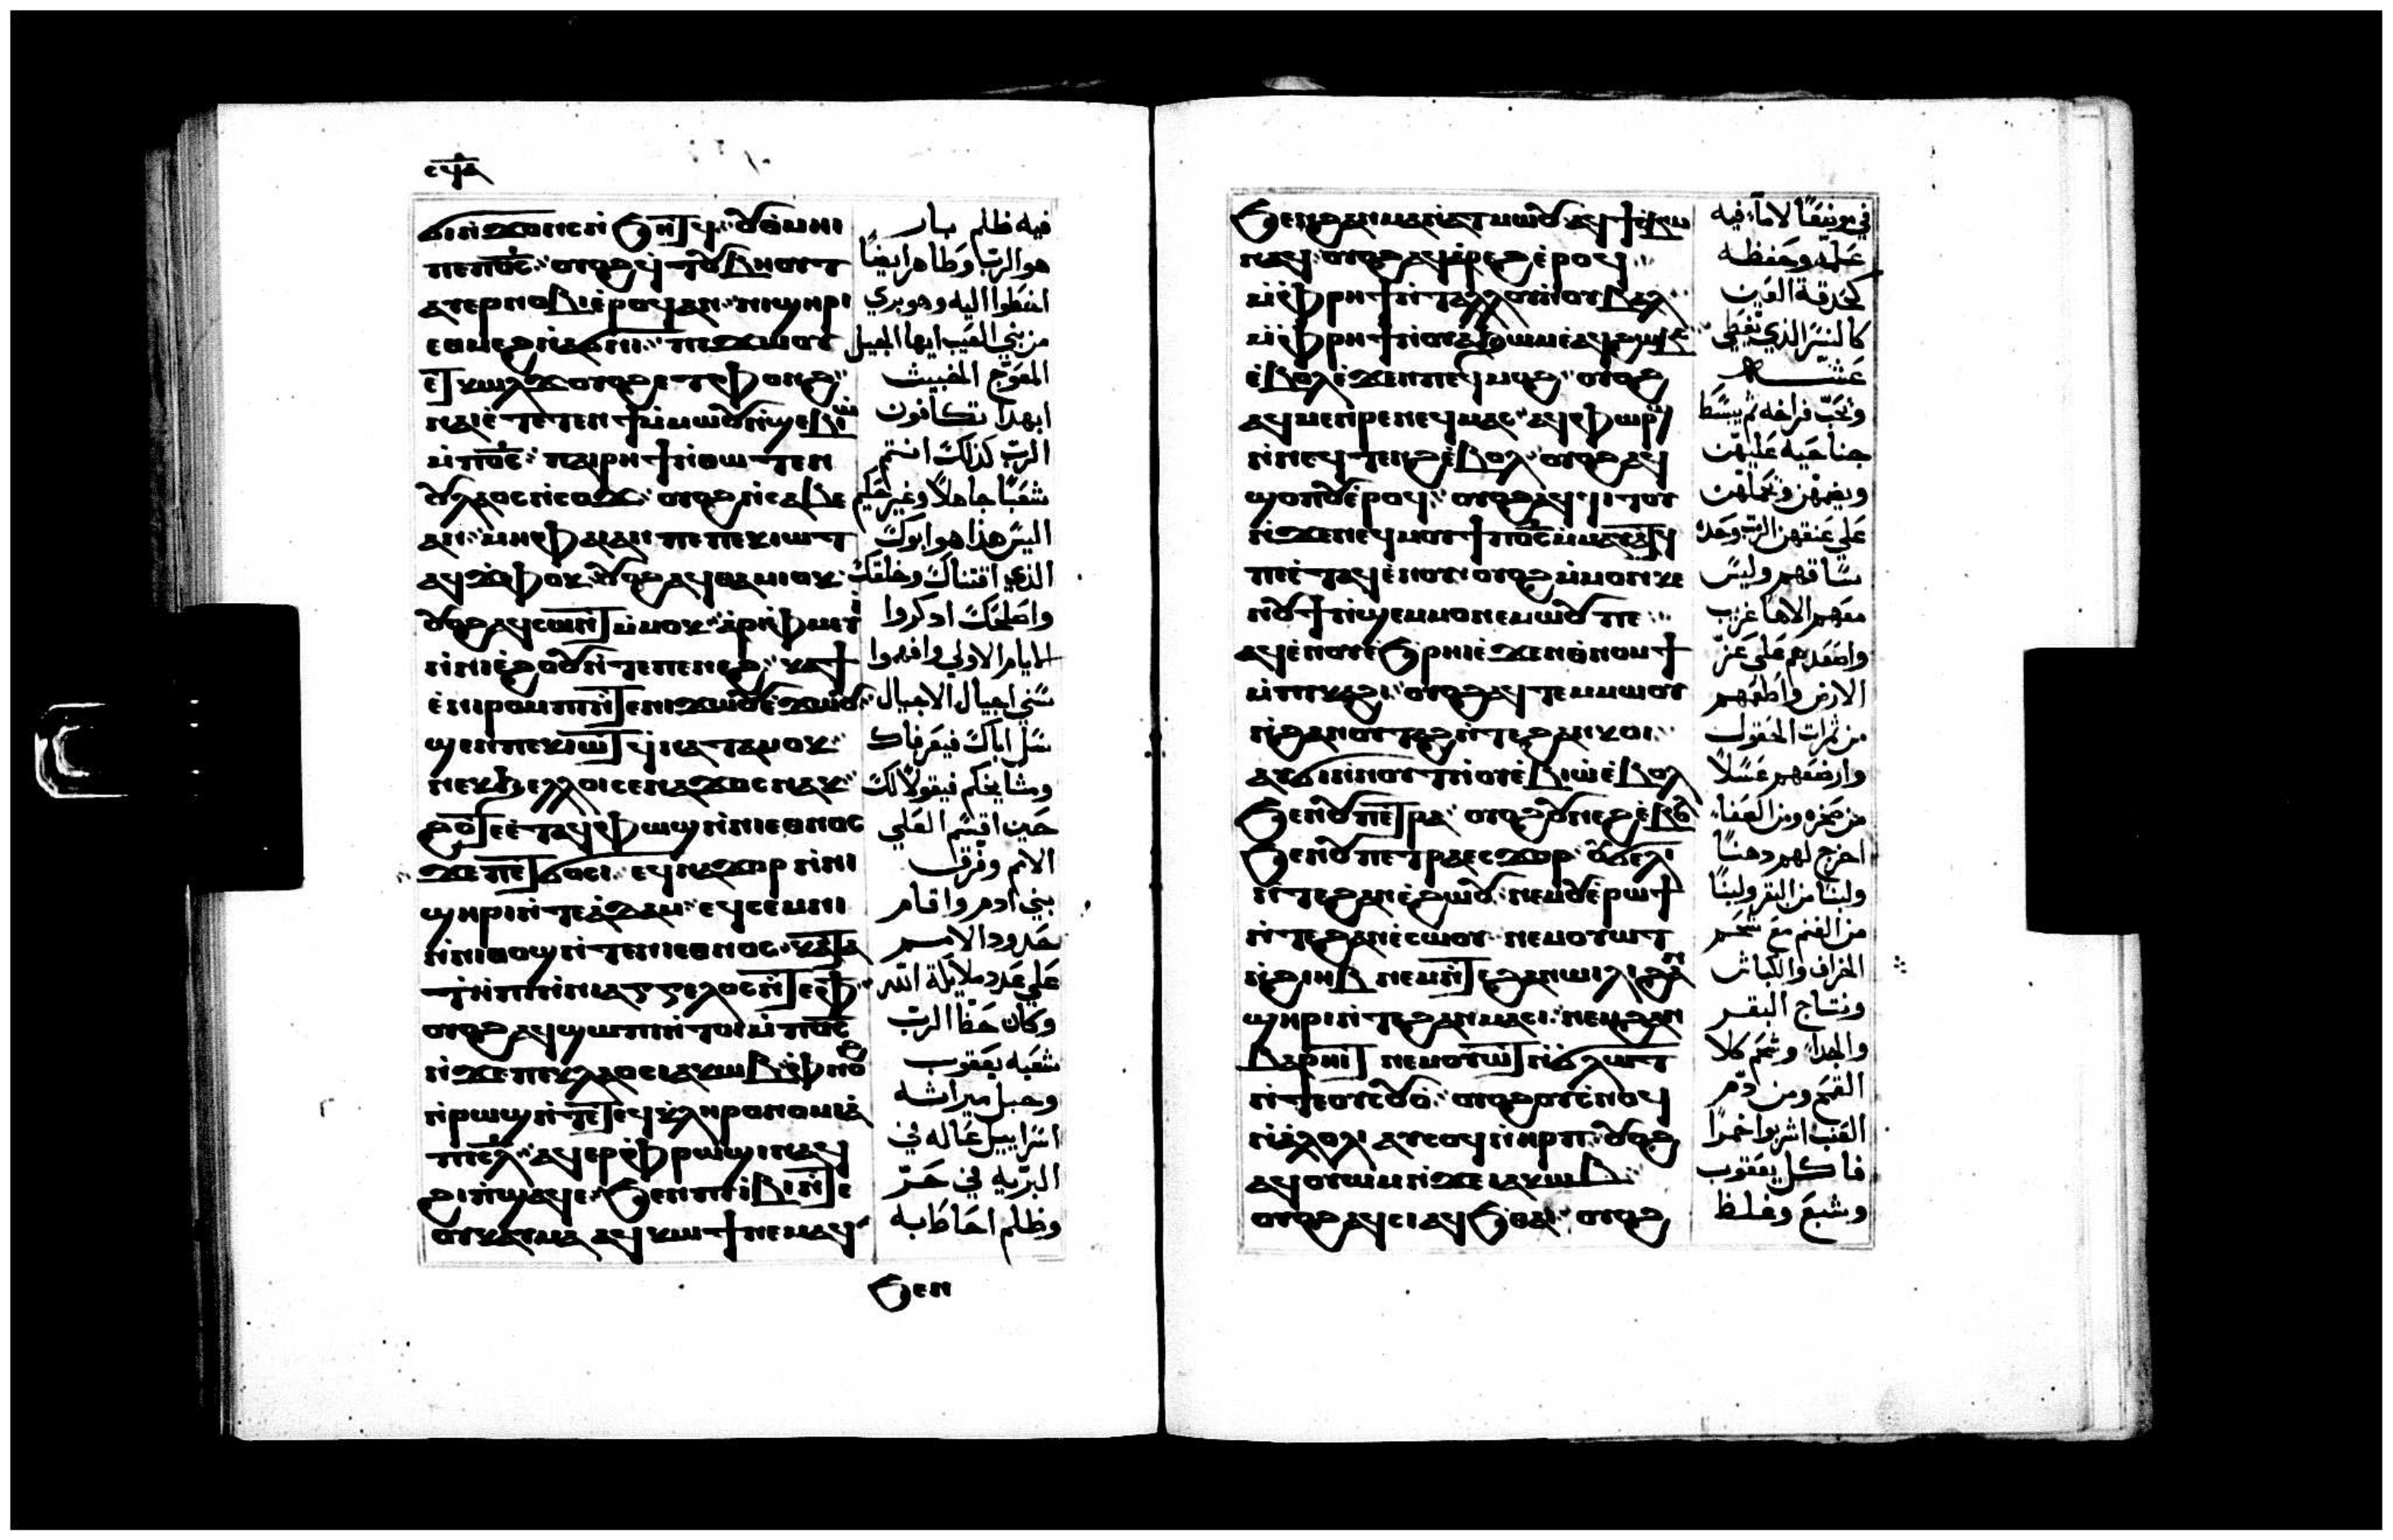 ⲥϥⲁ
ϭⲓⲛ̀ϫⲟⲛⲥⲛ̀ϧⲏⲧϥ· ⲟⲩⲑ̀ⲙⲏⲓ
ⲡⲉⲡϭⲟⲓⲥ· ⲟⲩⲟϩ ϥ̀ⲧⲟⲩⲃⲏⲟⲩⲧ
ⲁⲩⲉⲣⲛⲟⲃⲓⲉ̀ⲣⲟϥⲁⲛ· ⲛⲓϣⲏⲣⲓ
ⲉⲑⲙⲉϩⲛ̀ⲁϭⲛⲓ· ⲡⲉϫⲱⲟⲩ
ⲉⲧⲕⲱⲗϫ ⲟⲩⲟϩ ⲉⲧⲫⲟⲛϩ
ⲛⲁⲓⲉ̀ⲧⲉⲧⲉⲛϯⲙ̀ⲙⲱⲟⲩⲛ̀ϣⲉⲃⲓⲱ
ⲙ̀ⲡϭⲟⲓⲥ· ⲡⲁⲓⲣⲏϯⲛ̀ⲑⲱⲧⲉⲛ
ⲟⲩⲗⲁⲟⲥⲛ̀ⲥⲟϫ· ⲟⲩⲟϩ ⲛ̀ⲥⲁⲃⲉ
ⲁⲛ· ⲙⲏⲫⲁⲓⲁⲛ ⲡⲉⲡⲉⲕⲓⲱⲧ
ⲁϥϫ̀ⲫⲟⲕ· ⲟⲩⲟϩ ⲁϥⲑⲁⲙⲓⲟⲕ
ⲟⲩⲟϩ ⲁϥⲥⲱⲛⲧ ⲙ̀ⲙⲟⲕ· ⲁⲣⲓⲫ̀ⲙⲉⲩⲓ
ⲛ̀ⲛⲓⲉ̀ϩⲟⲟⲩ ⲛ̀ⲧⲉⲡⲉⲛⲉϩ· ⲕⲁϯ
ⲉ̀ⲛⲓⲣⲟⲙⲡⲓ ⲛ̀ⲧⲉⲛⲓϫⲱⲟⲩⲉ̀ϫⲱⲟⲩ
ϣⲉⲛⲡⲉⲕⲓⲱⲧ ϥ̀ⲛⲁⲧⲁⲙⲟⲕ
ⲛⲉⲕϧⲉⲗⲗⲟⲓ ⲥⲉⲛⲁϫⲟⲥ ⲛⲁⲕ
ϩⲟⲧⲉ ⲉ̀ⲧⲁϥⲫⲱϣ ⲛ̀ⲛⲓⲉⲑⲛⲟⲥ
ϫⲉⲡⲉⲧϭⲟⲥⲓ· ⲉϥⲛⲁϫⲱⲣ ⲛ̀ⲛⲓ
ϣⲏⲣⲓ ⲛ̀ⲧⲉⲁ̀ⲇⲁⲙ· ⲉϥⲥⲉⲙⲛⲓ
ⲛ̀ⲛⲓⲑⲟϣ ⲛ̀ⲧⲉⲛⲓⲉⲑⲛⲟⲥ· ⲕⲁⲧⲁ
ⲧ̀ⲏⲡⲓ ⲛ̀ⲛⲓⲁⲅⲅⲉⲗⲟⲥ ⲛ̀ⲧⲉⲫϯ
ⲟⲩⲟϩ ⲁϥϣⲱⲡⲓ ⲛ̀ⲧⲟⲓ ⲙ̀ⲡϭⲟⲓⲥ
ⲛ̀ϫⲉⲡⲉϥⲗⲁⲟⲥ ⲓⲁⲕⲱⲃ· ⲫ̀ⲛⲟϩ
ⲛ̀ⲣⲱϣ ⲛ̀ⲧⲉⲧⲉϥⲕ̀ⲗⲏⲣⲟⲛⲟⲙⲓⲁ
ⲡⲓⲥⲗ· ⲁϥⲉⲣⲫ̀ⲣⲱϣⲓ ⲛⲁϥ
ϩⲓⲛ̀ϣⲁϥⲉ· ϧⲉⲛⲡⲓⲓ̀ⲃⲓ ⲛ̀ⲧⲉ
ⲟⲩⲕⲁⲩⲙⲁ ⲁϥⲕⲱϯ ⲛⲉⲙⲁϥ
ϧⲉⲛ
فيه ظلم بار
هو الرب وطاهر ايضاً
اخطوا اليه وهو بري
من بني العيب ايها الجيل
المعوج الخبيث
ابهذا تكافون
الرب كذلك انتم
شعبًا جاهلاً وغير حكيم
اليس هذا هو ابوك
الذي اقتناك وخلقك
واصلحك اذكروا
الايام الاولي وافهموا
سني اجيال الاجيال
سل اباك فيعرفك
ومشايخكم فيقولا لك
حين اقسم العلي
الامم وفرق
بني ادم واقام
حدود الامم
علي عدد ملايكة الله
وكان حظا الرب
شعبه يعقوب
وحبل ميراثه
اسراييل عاله في
البريه في حر
وظلم احاط به
ϧⲉⲛϩⲁⲛⲙⲁⲛⲁⲧⲙⲱⲟⲩ ⲁϥϯⲥ̀ⲃⲱ
ⲛⲁϥ· ⲟⲩⲟϩ ⲁϥⲁ̀ⲣⲉϩ ⲉ̀ⲣⲟϥ
ⲙ̀ⲫ̀ⲣⲏϯ ⲛ̀ⲧⲁⲗⲗⲟⲩ ⲛ̀ⲟⲩⲃⲁⲗ
ⲙ̀ⲫ̀ⲣⲏϯ ⲛ̀ⲟⲩⲁϧⲱⲙ ⲉϥϩⲱⲃⲥ
ⲉ̀ⲃⲟⲗⲉ̀ϫⲉⲛⲡⲉϥⲙⲟϩ· ⲟⲩⲟϩ
ⲁϥⲙⲉⲛⲣⲉⲛⲉϥⲙⲁⲥ· ⲁϥⲫⲱⲣϣ
ⲛ̀ⲛⲉϥⲧⲉⲛϩ ⲉ̀ⲃⲟⲗ· ⲟⲩⲟϩ ⲁϥ
ϣⲟⲡⲟⲩ ⲉ̀ⲣⲟϥ· ⲟⲩⲟϩ ⲁϥϥⲓⲧⲟⲩ
ⲛ̀ϫⲉⲛⲉϥⲙⲟⲩϯ ⲡϭⲟⲓⲥ ⲙ̀ⲙⲁⲩⲁⲧϥ
ⲡⲉⲉ̀ⲧⲁϥⲉ̀ⲛⲟⲩ ⲟⲩⲟϩ ⲙ̀ⲙⲟⲛ ⲕⲉ
ⲛⲟⲩϯ ⲛ̀ϣⲉⲙⲙⲟ ⲛⲉⲙⲱⲟⲩ ⲡⲉ
ⲁϥⲉ̀ⲛⲟⲩ ⲉ̀ϧⲣⲏⲓ ⲉ̀ϫⲉⲛⲑ̀ⲛⲟⲙϯ
ⲙ̀ⲡⲕⲁϩⲓ· ⲟⲩⲟϩ ⲁϥⲧⲉⲙⲙⲱⲟⲩ
ⲛ̀ϩⲁⲛⲟⲩⲧⲁϩ ⲛ̀ⲧⲉϩⲁⲛⲕⲟⲓ
ⲁⲩϭⲓ ⲛ̀ⲛⲟⲩϯ ⲛ̀ⲟⲩⲉ̀ⲃⲓⲱ̀ ⲉ̀ⲃⲟⲗ
ϧⲉⲛⲟⲩⲡⲉⲧⲣⲁ· ⲟⲩⲟϩ ⲟⲩⲛⲉϩ ⲉ̀ⲃⲟⲗ
ϧⲉⲛⲟⲩⲡⲉⲧⲣⲁ ⲉⲥϫⲟⲣ· ⲟⲩⲕⲉⲗⲓ
ⲛ̀ⲧⲉϩⲁⲛⲉ̀ϩⲱⲟⲩ· ⲛⲉⲙⲟⲩⲉ̀ⲣⲱϯ
ⲛ̀ⲧⲉϩⲁⲛⲉ̀ⲥⲱⲟⲩ ⲛⲉⲙⲟⲩⲱⲧ
ⲛ̀ϩⲓⲏⲃ ⲛⲉⲙⲛ̀ⲧⲉϩⲁⲛⲱⲓⲗⲓ ϩⲁⲛ
ϣⲏⲣⲓ ⲛ̀ⲧⲉϩⲁⲛⲙⲁⲥⲓ· ⲛⲉⲙϩⲁⲛ
ⲃⲁⲣⲏⲓⲧ ⲛⲉⲙⲟⲩⲱⲧ ⲛ̀ϭⲗⲱⲧ
ⲛ̀ⲧⲉⲟⲩⲥⲟⲩⲟ· ⲟⲩⲟϩ ⲟⲩⲥ̀ⲛⲟϥ
ⲛ̀ⲁ̀ⲗⲟⲗⲓ ⲁⲩⲥⲟϥ ⲛ̀ⲏⲣⲡ· ⲟⲩⲟϩ
ⲁϥⲟⲩⲱⲙ ⲛ̀ϫⲉⲓⲁⲕⲱⲃ
ⲟⲩⲟϩ ⲁϥⲥⲓ ⲁϥϧⲑⲁⲓ· ⲟⲩⲟϩ
لا مآء فيه
علمه وحفظه
كحدقة العين
كالنسر الذي يغطي
عشه
ويحب فراخه ثم يبسط
جناحيه عليهن
ويضمهن ويحملهن
علي عنقهن الرب وحده
ساقهم وليس
معهم الاها غريب
واصعدهم علي عز
الارض واطعمهم
من ثمرات الحقول
وارضعهم عسلاً
من صخره ومن الصفاء
اخرج لهم دهنًا
ولبنا من البقر ولبنًا
من الغنم مع شحم
الخراف والكباش
ونتاج البقر
والجداء وشحم كلا
القمح ومن دم
العنب اشربوا خمرًا
فاكل يعقوب
وشبع وغلظ